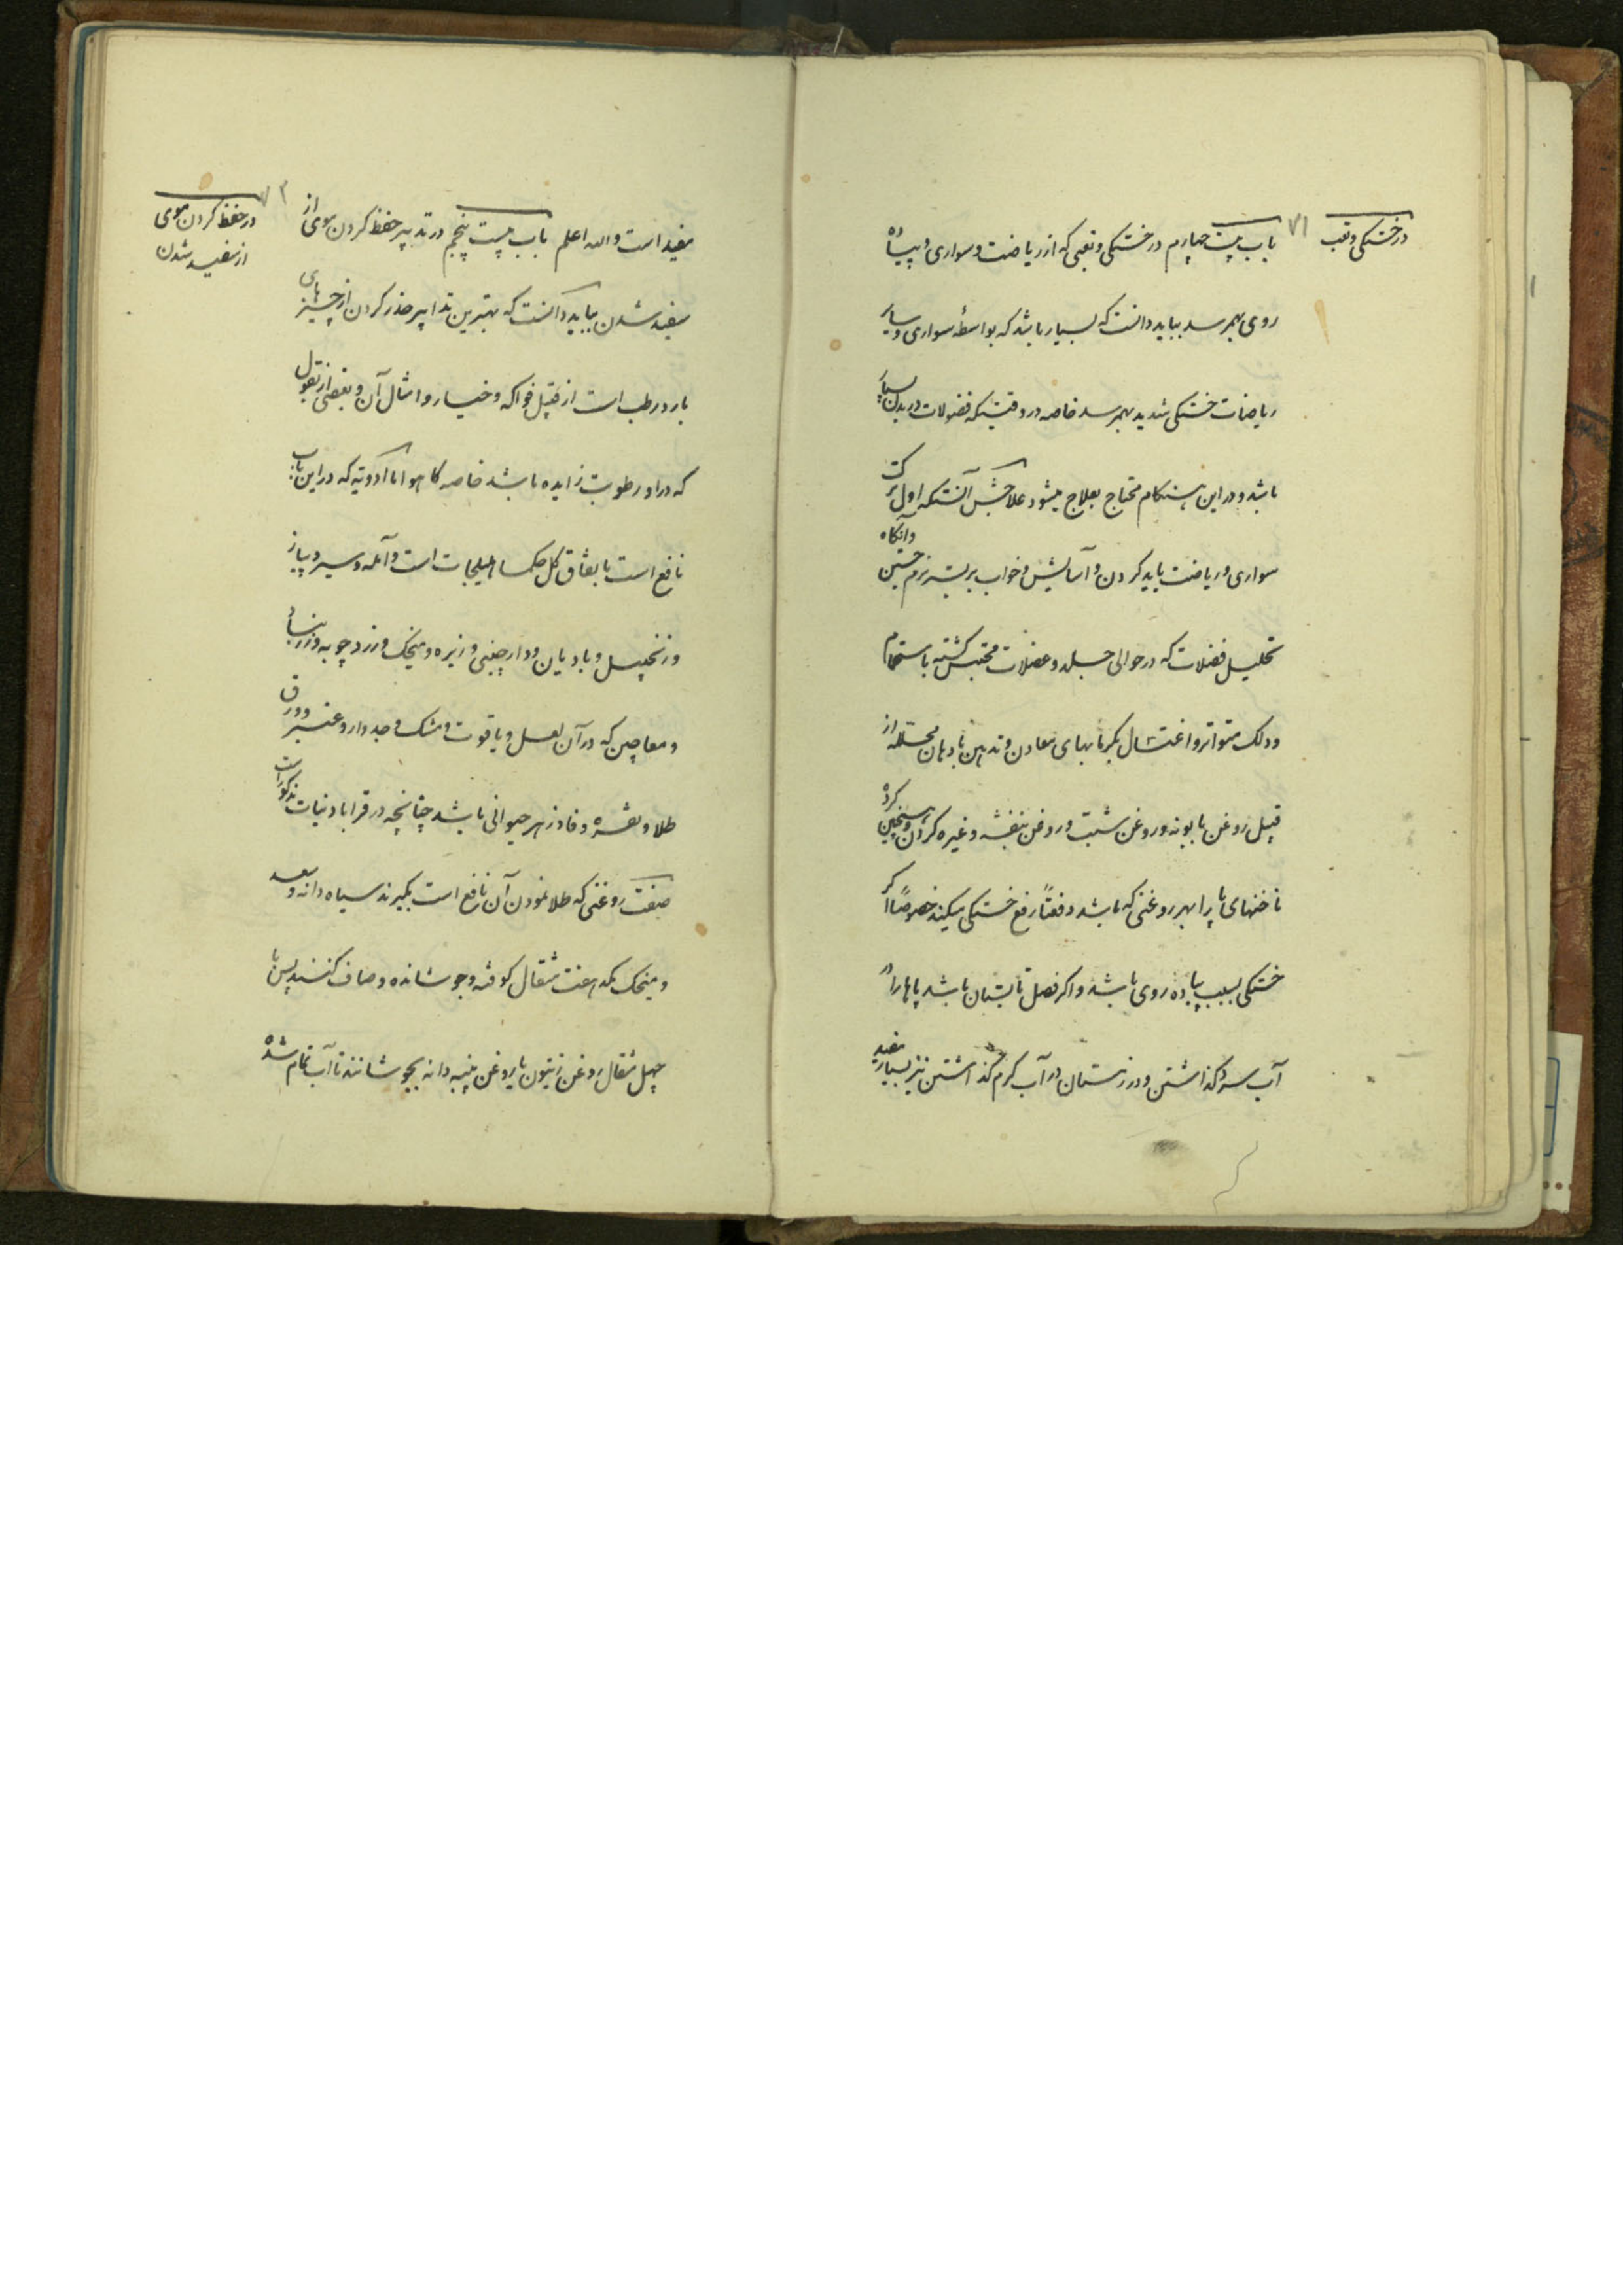 در خستگی و تعب
۷۱
باب بیست چهارم در خستگی و تعبی که از ریاضت و سواری و پیاده
روی بهمرسد بباید دانست که بسیار باشد که بواسطهٔ سواری و سایر
ریاضات خستگی شدید بهمرسد خاصه در وقتیکه فضولات در بدن بسیار
باشد و در این هنکام محتاج بعلاج میشود علاجش آنستکه اول ترک
سواری و ریاضت باید کردن و آسایش و خواب بر بستر نرم جستن وآنکاه
تحلیل فضلات که در حوالی جلد و عضلات محتبس کشته باستحمام
و دلک متواتر و اغتسال بکرمابهای معادن و تدهین بادهان محلله از
قبیل روغن بابونه و روغن شبت و روغن بنفشه و غیره کردن و همچنین
ناخنهای پا را بهر روغنی که باشد دفعتاً رفع خستگی میکند خصوصاً اکر
خستگی بسبب پیاده روی باشد و اکر فصل تابستان باشد پاها را در
آب سرد کذاشتن و در زمستان در آب کرم کذاشتن نیز بسیار مفید
در حفظ کردن موی
از سفید شدن
مفید است والله اعلم باب بیست پنجم در تدبیر حفظ کردن موی از
سفید شدن بباید دانست که بهترین تدابیر حذر کردن از چیز های
بارد رطب است از قبیل فواکه و خیار و امثال آن و بعضی از بقول
که در او رطوبت زایده باشد خاصه کاهو اما ادویه که در این باب
نافع است باتفاق کل حکما هلیلجات است و آمله و سیر و پیاز
و زنجبیل و بادیان و دارچینی و زیره و میخک و زردچوبه و زرنباد
و معاجین که در آن لعل و یاقوت و مشک و جدوار و عنبر و ورق
طلا و نقره و فادزهر حیوانی باشد چنانچه در قرابادینات مذکور است
صفت روغنی که طلا نمودن آن نافع است بکیرند سیاه دانه و سعد
و میخک یکد هفت مثقال کوفته و جوشانده و صاف کنند پس با
چهل مثقال روغن زیتون یا روغن پنبه دانه بجوشانند تا آب تمام شده